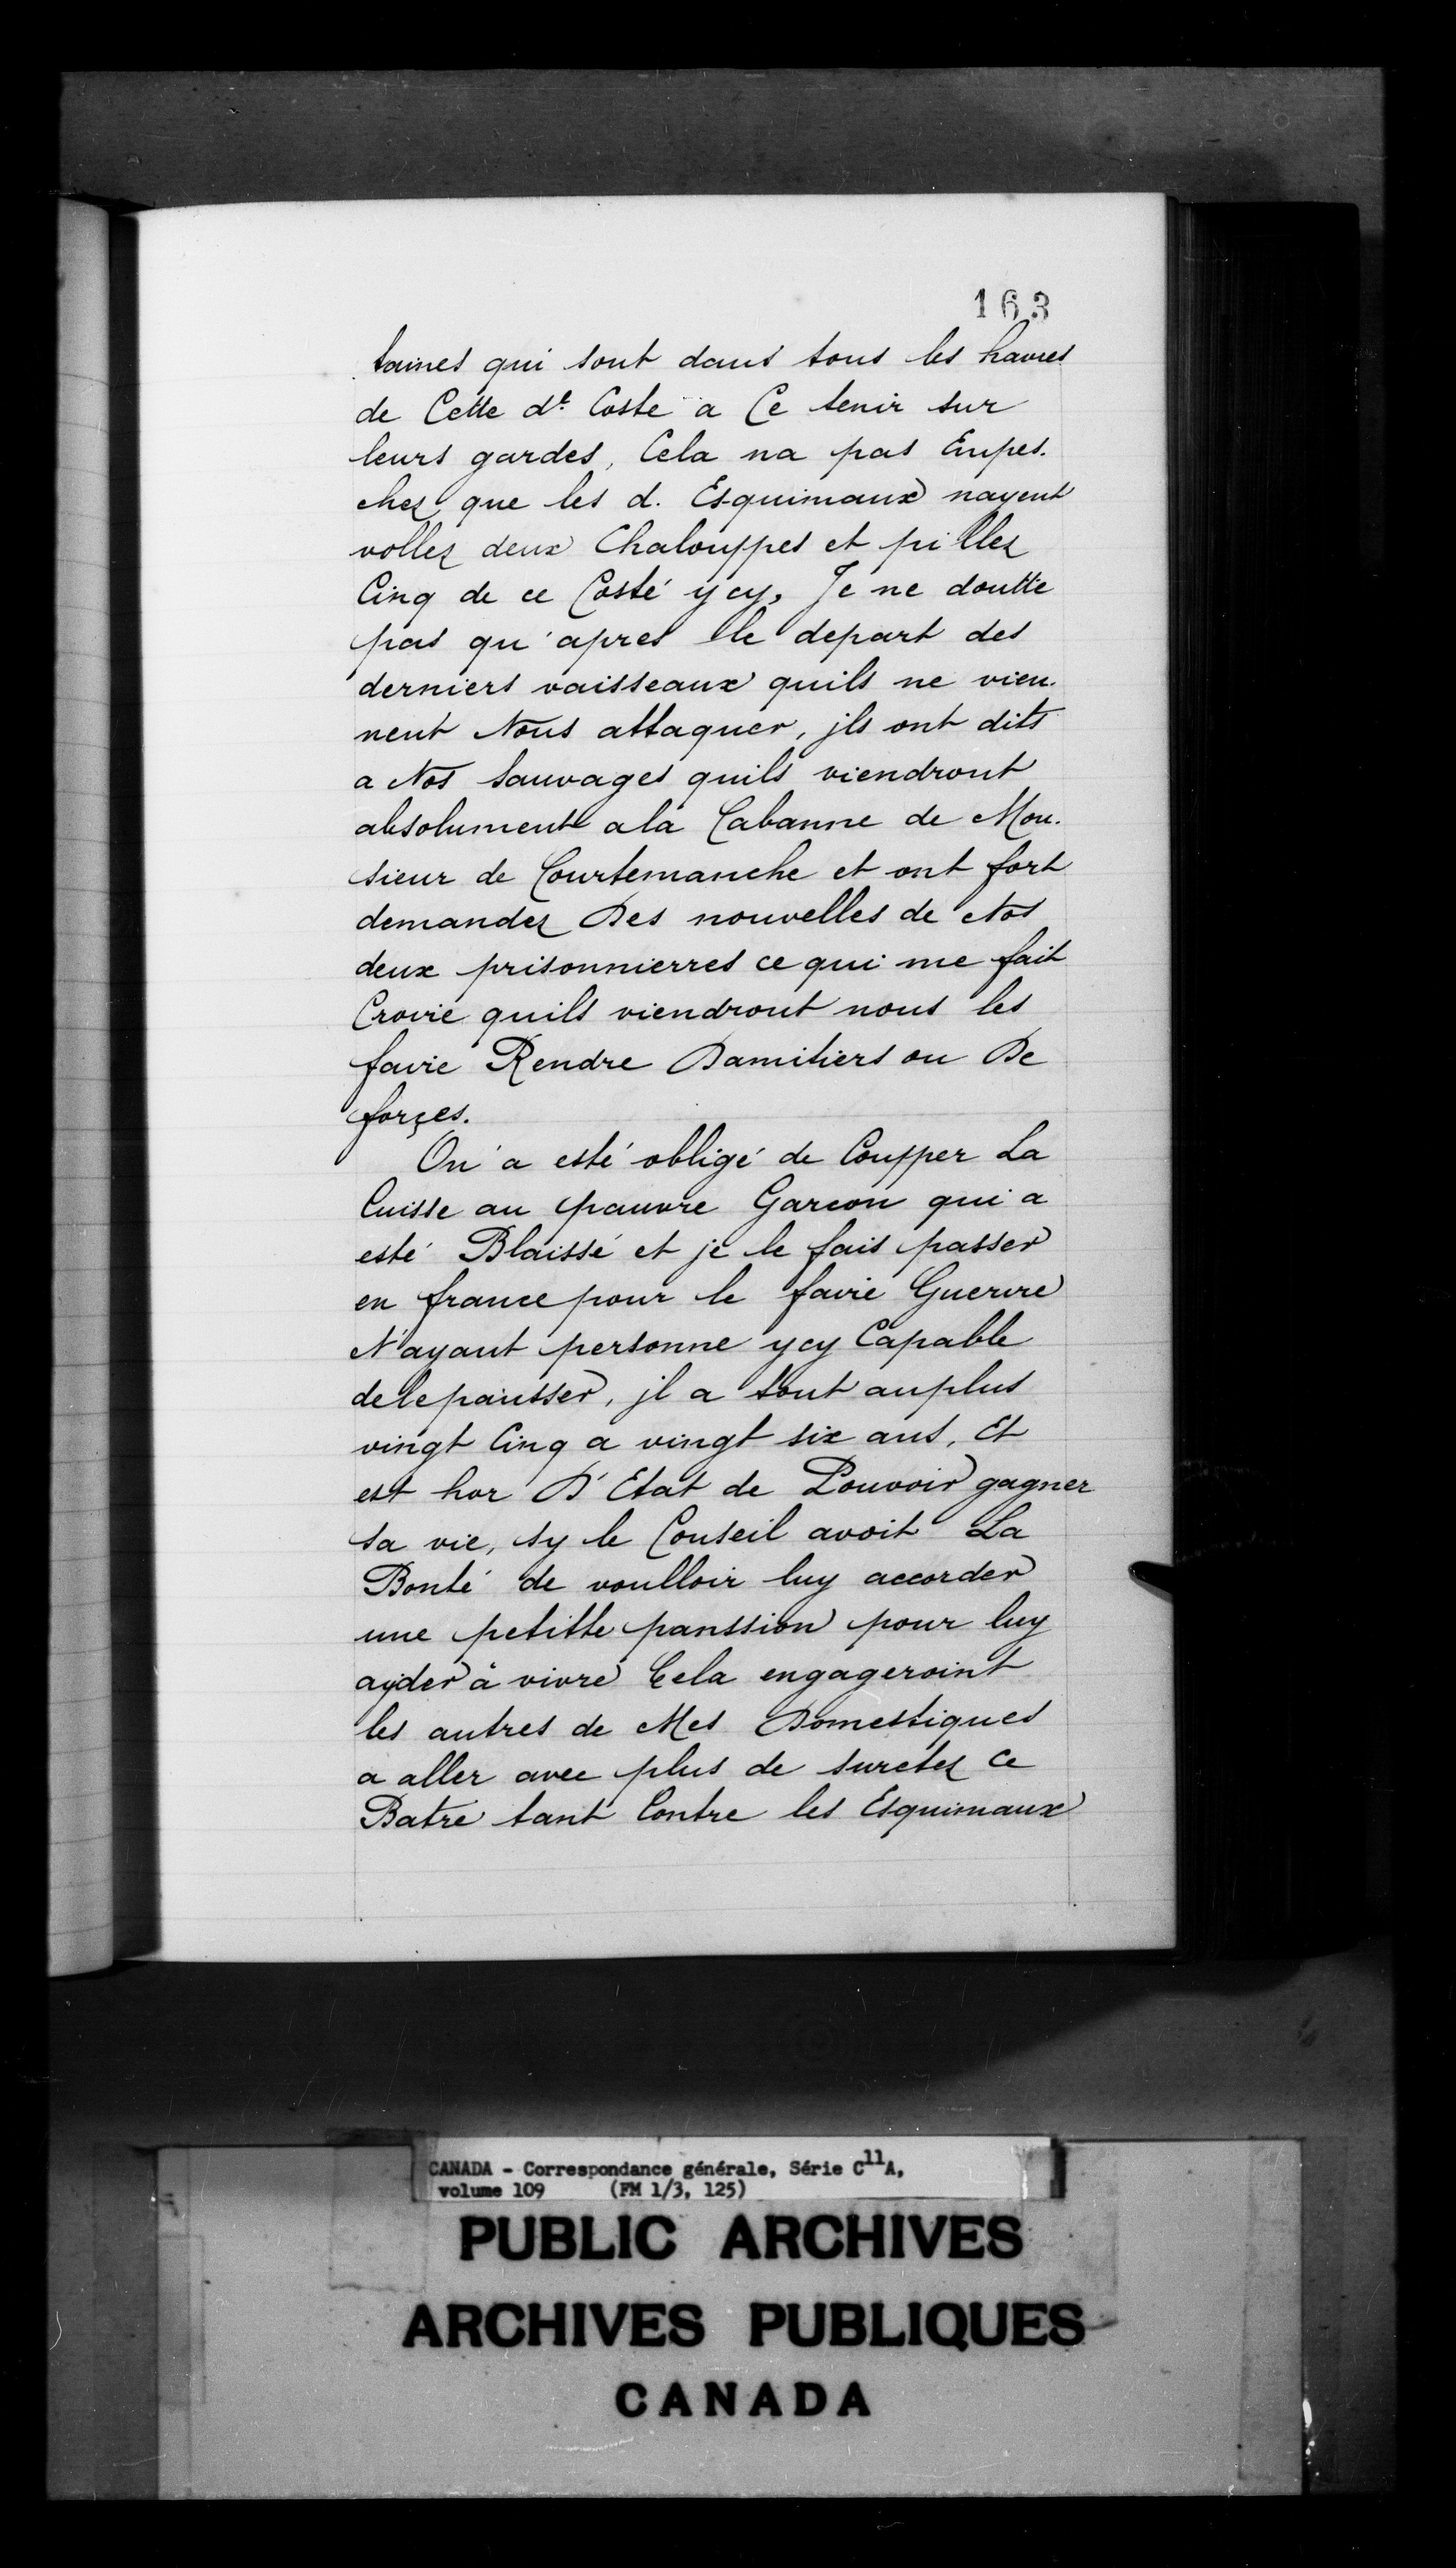 163
taines qui sont dans tous les havres
de Cette dt. Coste a Ce tenir sur
leurs gardes, Cela na pas Enpes.
chez que les d. Esquimaux nayent
vollez deux Chalouppes et pillez
Cinq de ce Costé ycy, Je ne doutte
pas qu'apres le depart des
derniers vaisseaux quils ne vien.
nent Nous attaquer, jls ont dits
a Nos Sauvages quils viendront
absolument ala Cabanne de Mon.
sieur de Courtemanche et ont fort
demandez Des nouvelles de Nos
deux prisonnierres ce qui me fait
Croire quils viendront nous les
faire Rendre Damitiers ou De
forçes.
On a esté obligé de Coupper La
Cuisse au pauvre Garcon qui a
esté Blaissé et je le fais passer
en france pour le faire Guerire
N'ayant personne ycy Capable
delepausser, jl a tout auplus
vingt Cinq a vingt six ans, Et
est hor D'Etat de Pouvoir gagner
sa vie, sy le Conseil avoit La
Bonté de voulloir luy accorder
une petitte panssion pour luy
ayder à vivre Cela engageroint
les autres de Mes Domestiques
a aller avec plus de suretez Ce
Batre tant Contre les Esquimaux
CANADA - Correspondance générale, Série C11A,
volume 109 (FM 1/3, 125)
PUBLIC ARCHIVES
ARCHIVES PUBLIQUES
CANADA